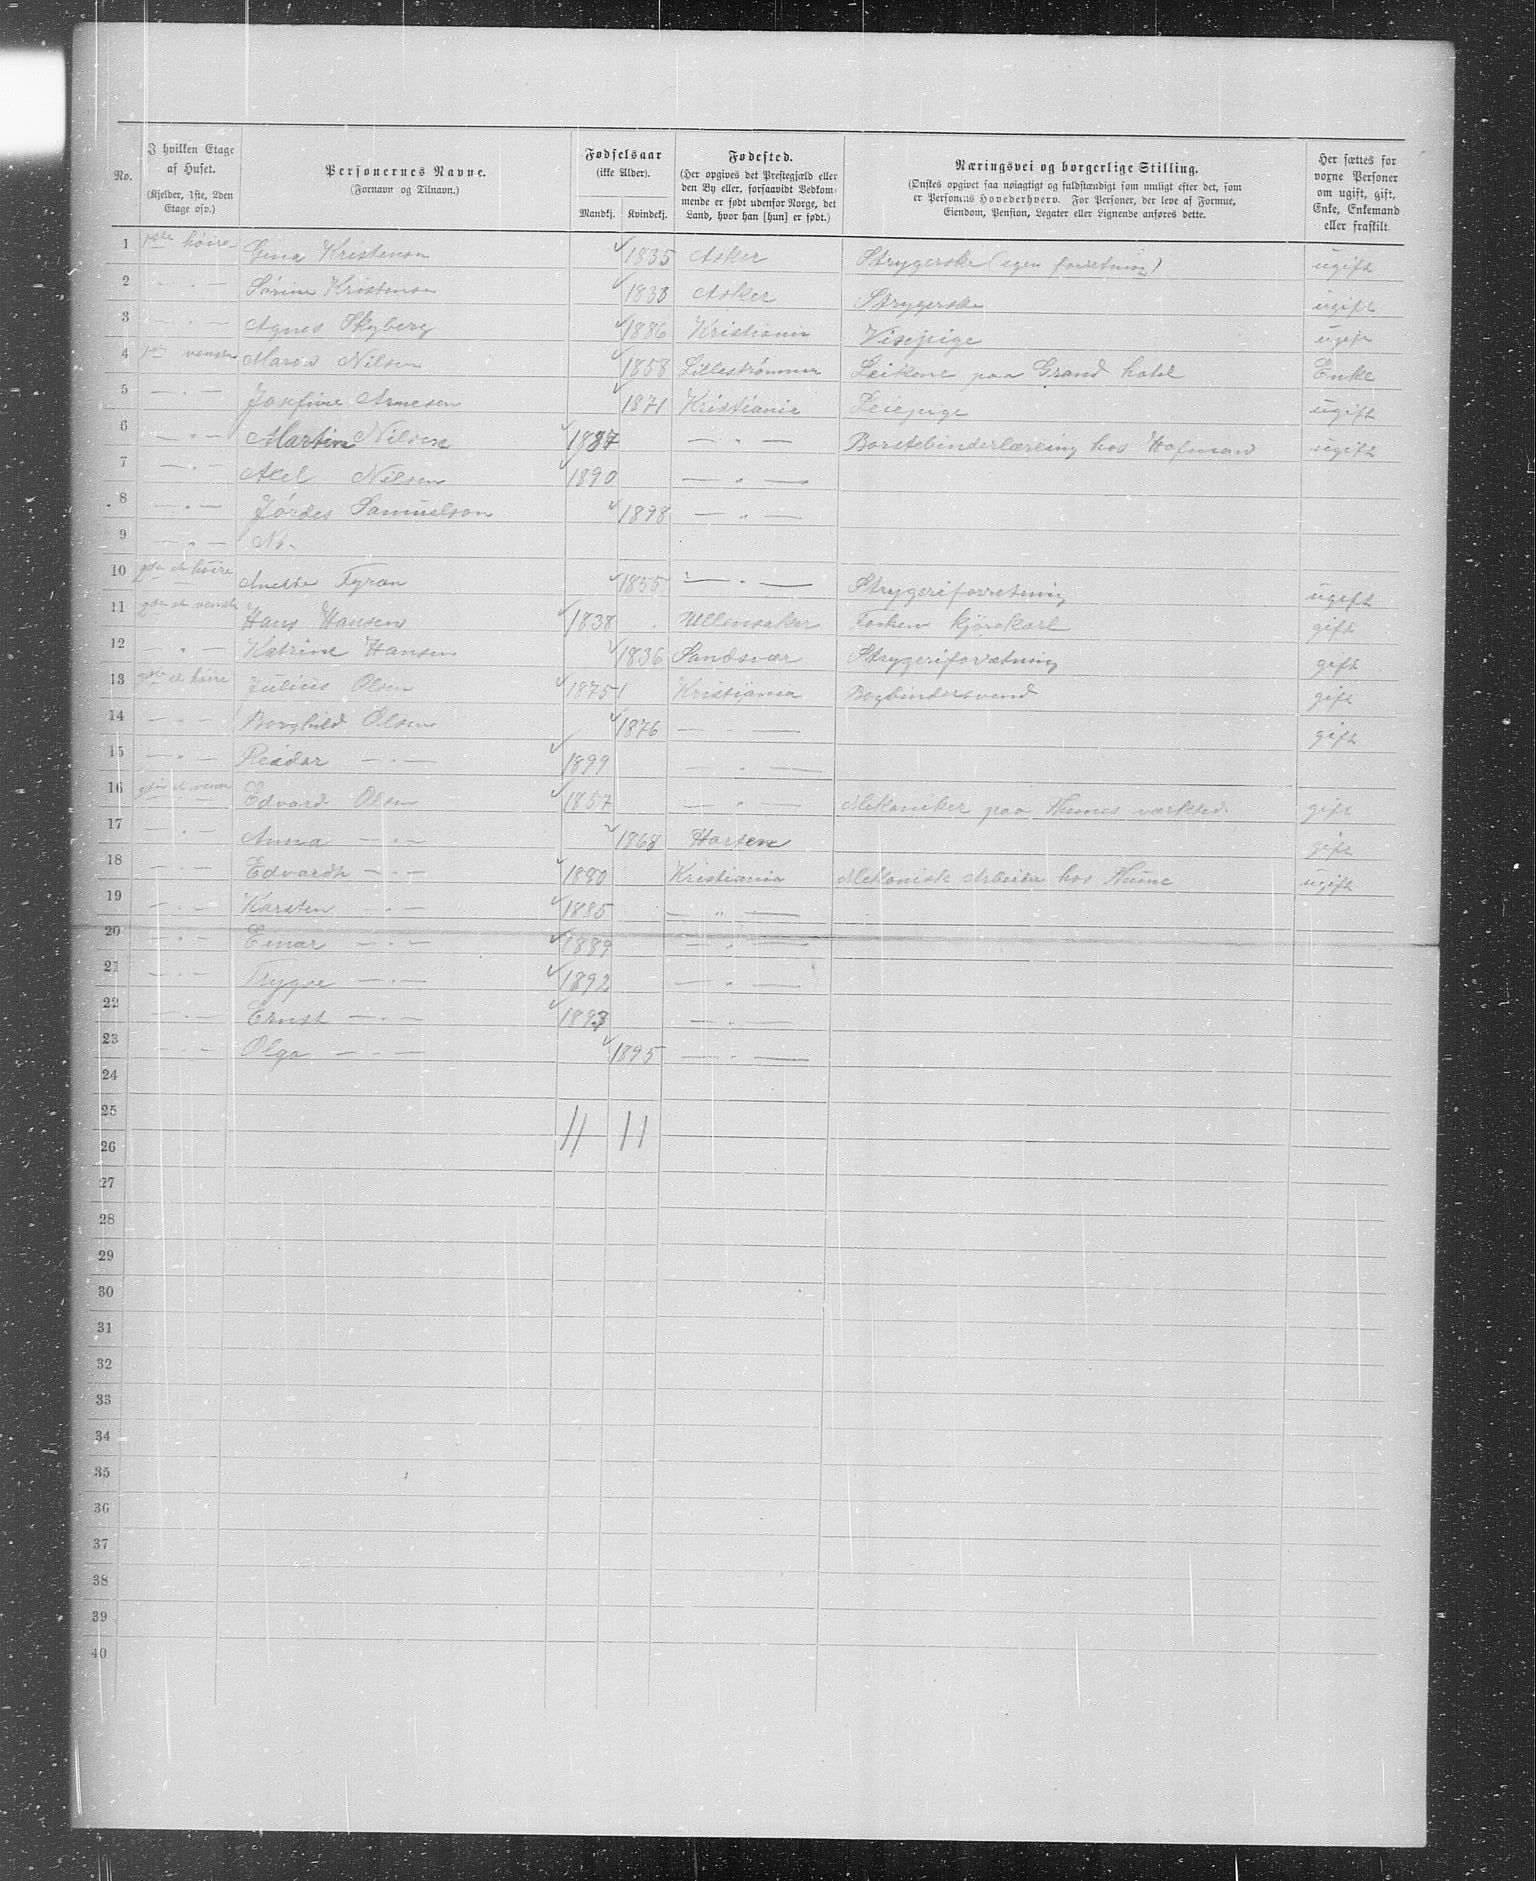 No. | I hvilken Etage af Huset. (Kjelder, 1ste, 2den Etage osv.) | Personernes Navne. (Fornavn og Tilnavn.) | Fødselsaar (ikke Alder). Mandkj. | Kvindekj. | Fødested. (Her opgives det Prestegjæld eller den By eller, forsaavidt Vedkommende er født udenfor Norge, det Land, hvor han [hun] er født.) | Næringsvei og borgerlige Stilling. (Ønskes opgivet saa nøiagtigt og fuldstændigt som muligt efter det, som er Personens Hovederhverv. For Personer, der leve af Formue, Eiendom, Pension, Legater eller Lignende anføres dette.) | Her sættes for voxne Personer om ugift, gift, Enke, Enkemand eller fraskilt.
1 høire Gina Kristensen 1835 Asker Strygerske (egen forretning) ugift
2 — " — Kristensen 1838 Asker Strygerske ugift
3 — " — Agnes Skyberg 1886 Kristiania Visepige ugift
4 Nilsen 1858 Lillestrømmen paa Grand hotel Enke
5 — " — Josefine Arnesen 1871 Kristiania Leiepige ugift
6 — " — Martin Nilsen 1887 — " — Børstebinderlærling hos ugift
7 — " — Axel Nilsen 1890 — " —
8 — " — Jørdes Samuelson 1898 — " —
9 — " — No.
10 høire Anette 1855 — " — Strygeriforretning ugift
11 Hans Hansen 1838 Ullensaker kjørekarl gift
12 — " — Katrine Hansen 1836 Sandsvær Strygeriforretning gift
13 høire Julius Olsen 1875 Kristiania Bogbindersvend gift
14 — " — Borghild Olsen 1876 — " — gift
15 — " — Reidar — " — 1899 — " —
16 Edvard Olsen 1857 — " — Mekaniker paa værksted gift
17 — " — Anna — " — 1868 Horten gift
18 — " — Edvardh — " — 1880 Kristiania Mekanisk Arbeider hos ugift
19 — " — Karsten — " — 1885 — " —
20 — " — Einar — " — 1889 — " —
21 — " — Trygve — " — 1892 — " —
22 — " — Ernst — " — 1893 — " —
23 — " — Olga — " — 1895 — " —
24
25
11 11
26
27
28
29
30
31
32
33
34
35
36
37
38
39
40